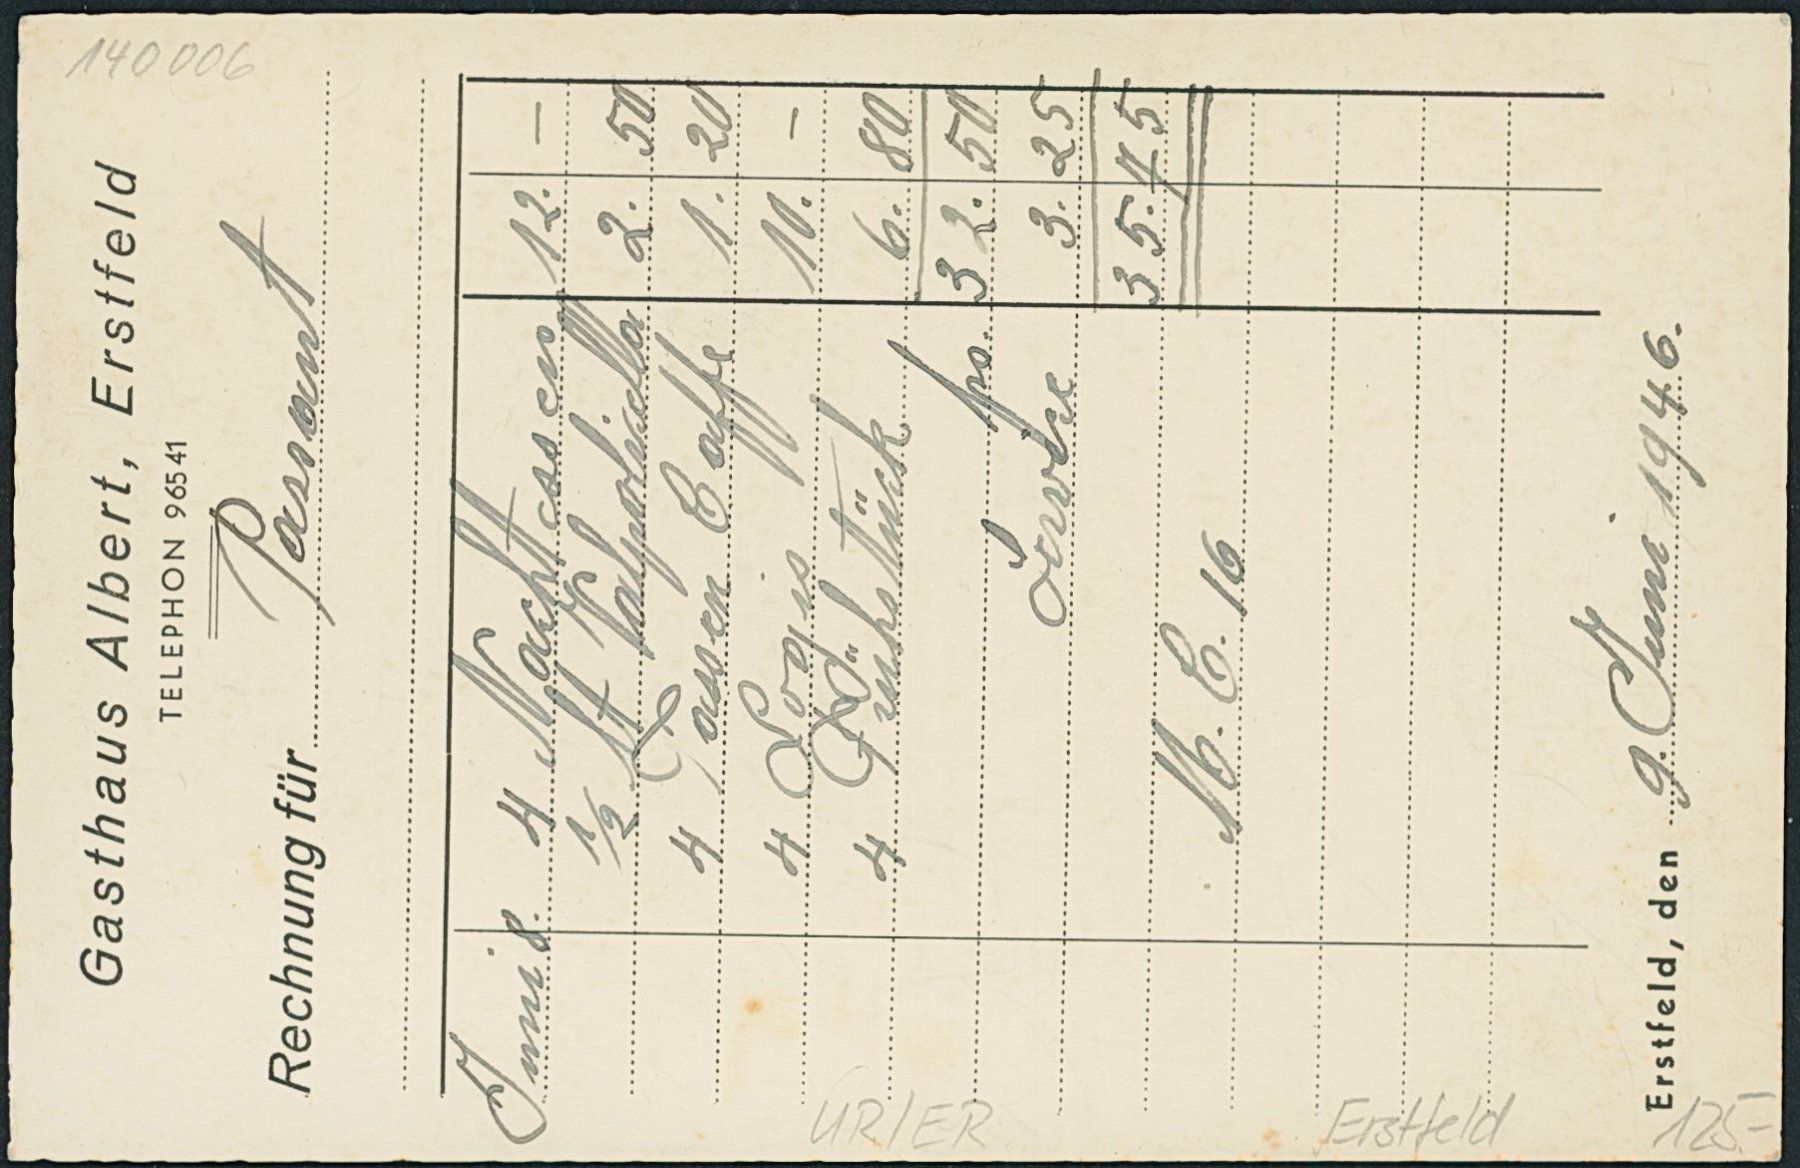 140006
Gasthaus Albert, Erstfeld
TELEPHON 96541
Rechnung für Passant
Juni 8. 4 Nachtessen 12. –
1/2 lt Valpolicella 2. 50
4 Tassen Caffe 1. 20
4 Logis 10. –
4 Frühstück 6. 80
frs. 32. 50
Service 3. 25
35. 75
M. C. 16
Erstfeld, den 9. Juni 1946.
UR/ER Erstfeld 125.-